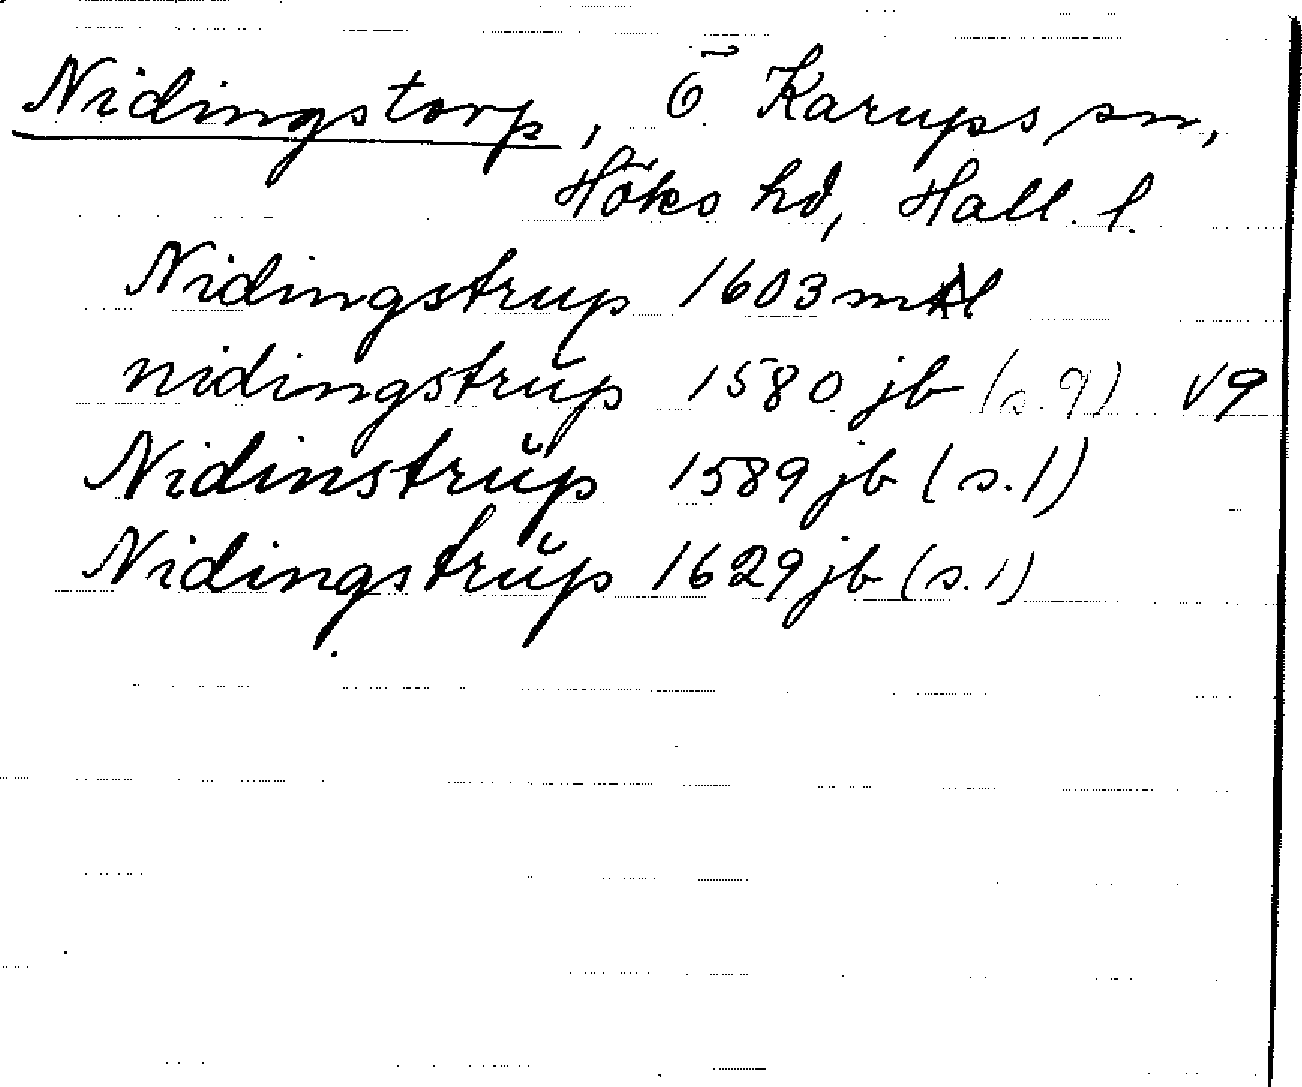 Nidingstorp, Ö. Karups sn,
Höks hd, Hall. l.
Nidingstrup 1603 mtl
nidingstrŭp 1580 jb (s. 9) v9
Nidinstrŭp 1589 jb (s. 1)
Nidingstrŭp 1629 jb (s. 1)